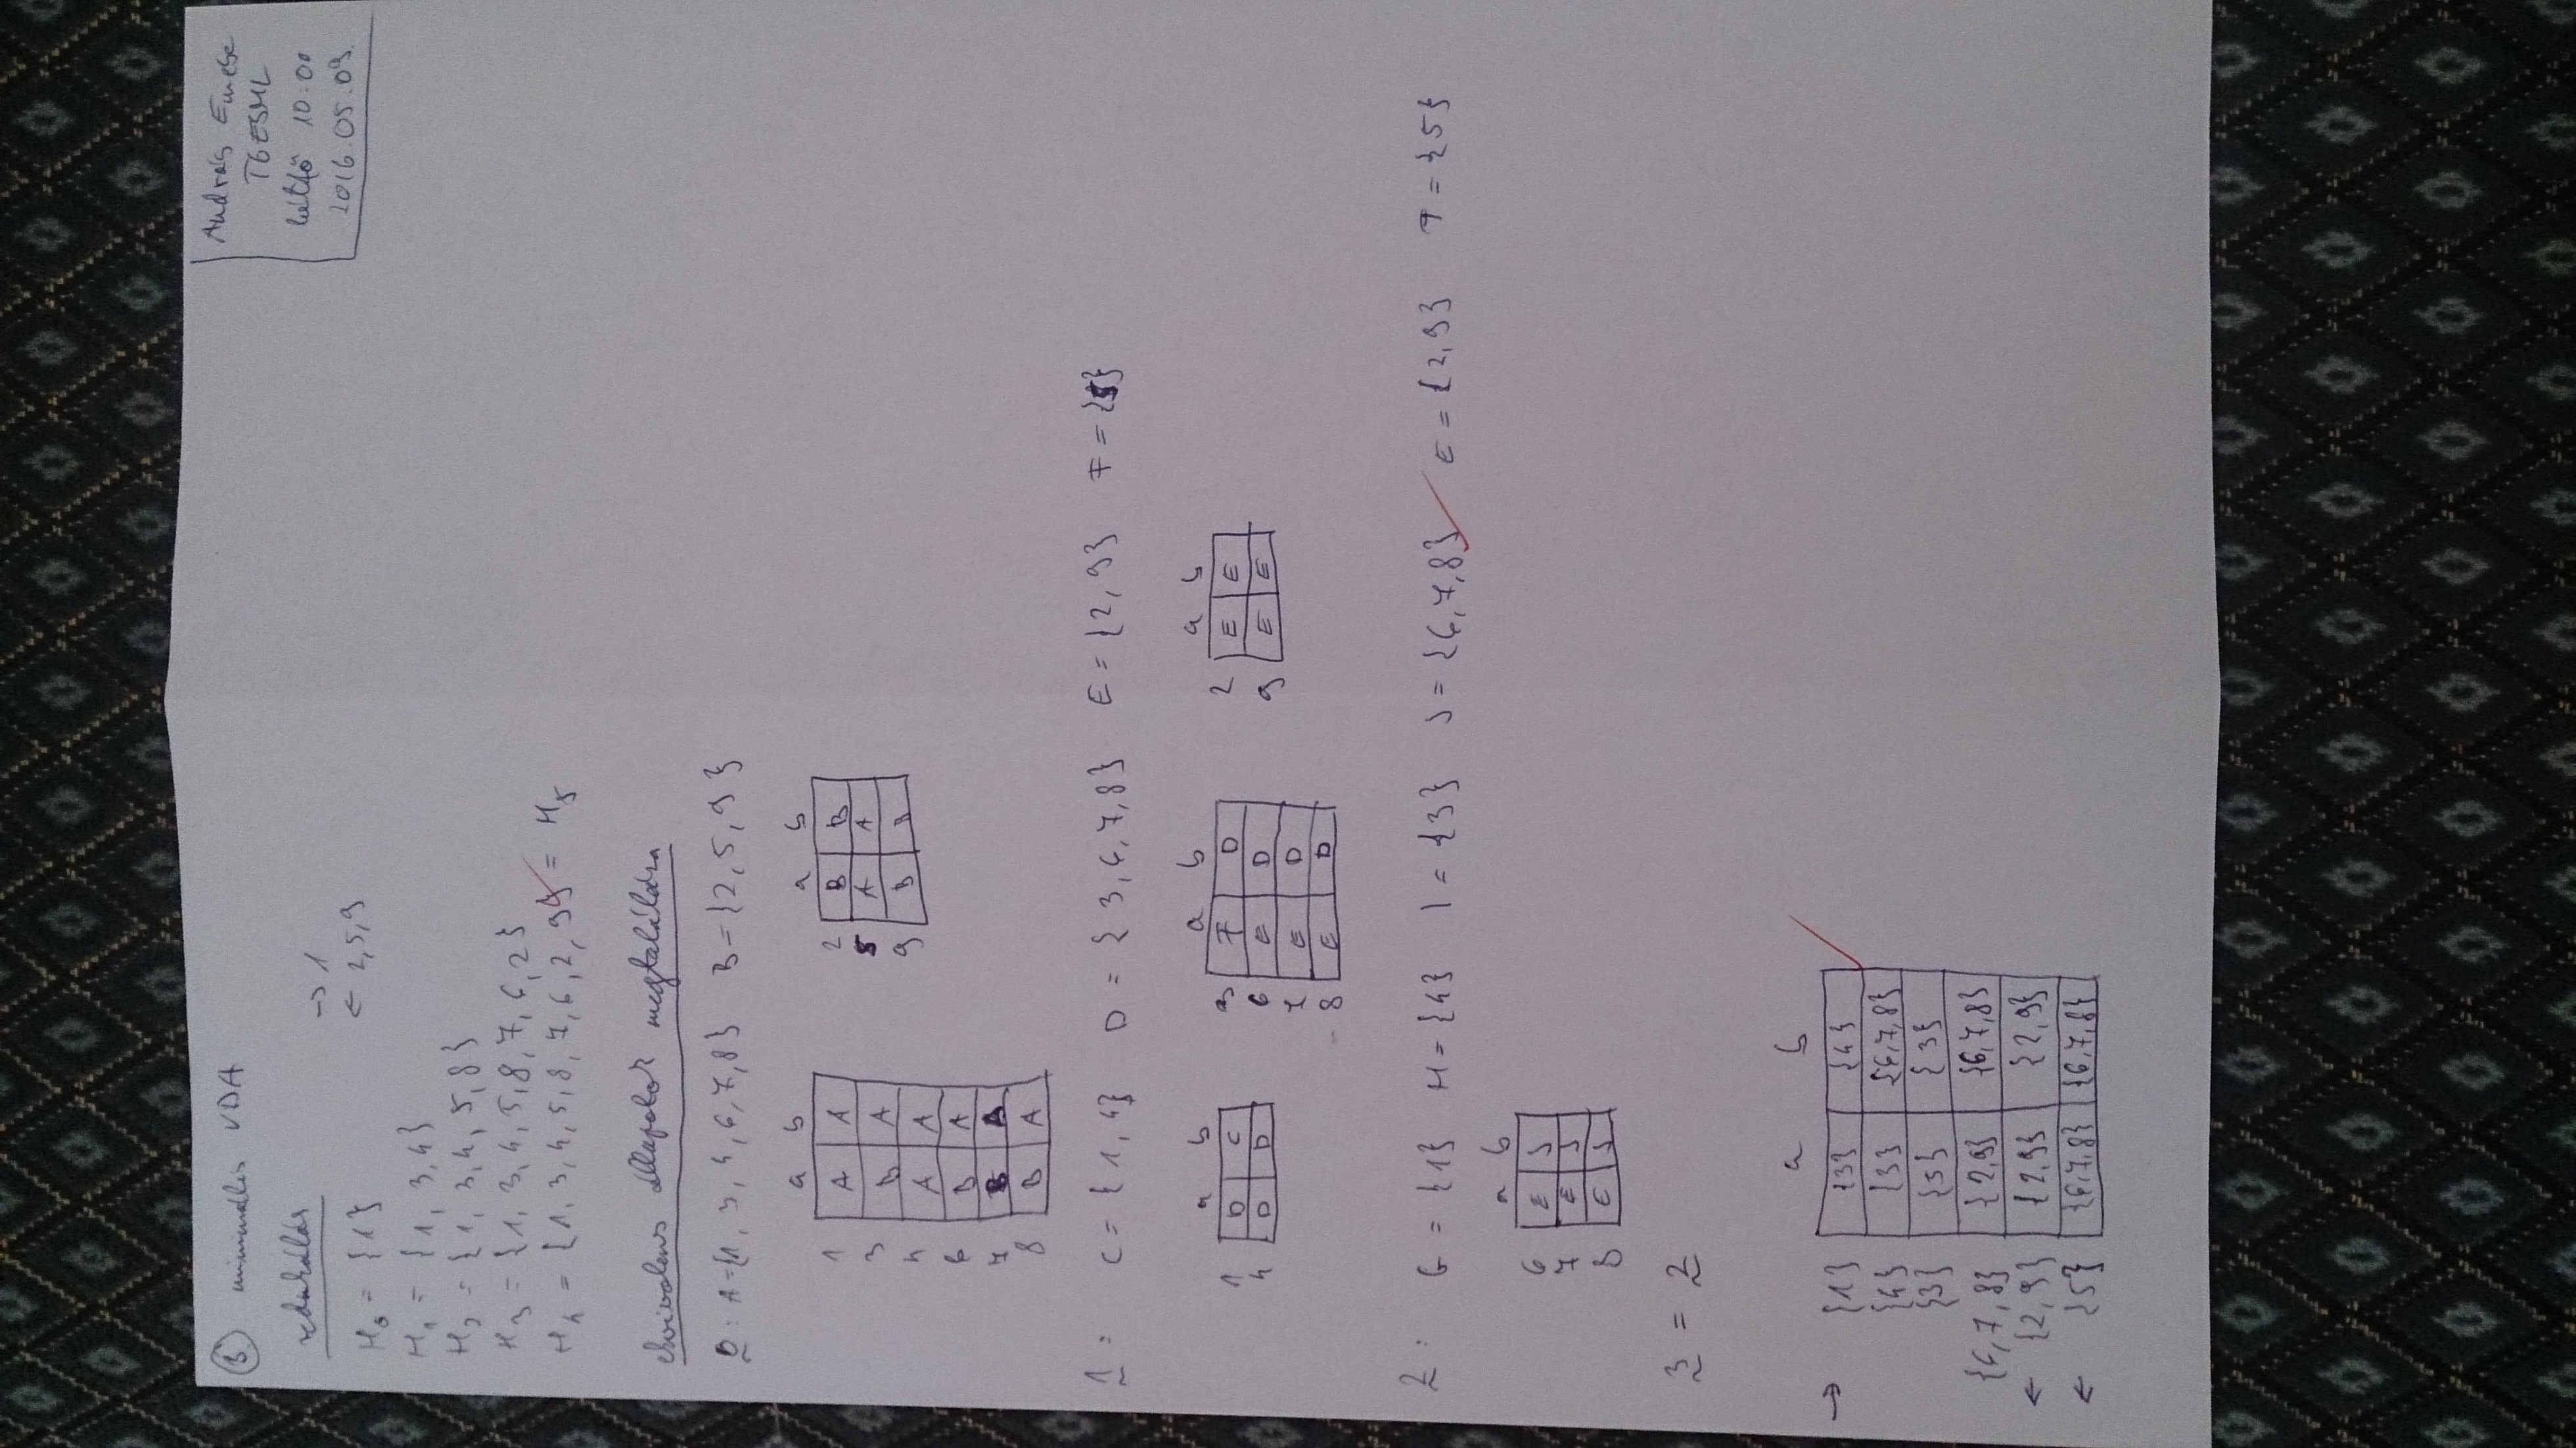 ③ minimális VDA
András Emese
T6E5ML
hétfő 10:00
2016.05.09.
redukálás
→ 1
← 2,5,9
H₀ = {1}
H₁ = {1, 3,4}
H₂ = {1, 3,4, 5,8}
H₃ = {1, 3,4,5,8,7,6,2}
H₄ = {1,3,4,5,8,7,6,2,9} = H₅
ekvivalens állapotok megtalálása
0: A={1, 3, 4, 6,7,8} B={2,5,9}
a b a b
1 A A 2 B B
3 B A 5 A A
4 A A 9 B B
6 B A
7 B A
8 B A
1: C = {1,4} D = {3,6,7,8} E = {2,9} F = {5}
a b a b a b
1 D C 3 F D 2 E E
4 D D 6 E D 9 E E
7 E D
8 E D
2: G = {1} H = {4} I = {3} J = {6,7,8} E = {2,9} F = {5}
a b
6 E J
7 E J
8 E J
3 = 2
a b
→ {1} {3} {4}
{4} {3} {6,7,8}
{3} {5} {3}
{6,7,8} {2,9} {6,7,8}
← {2,9} {2,9} {2,9}
← {5} {6,7,8} {6,7,8}